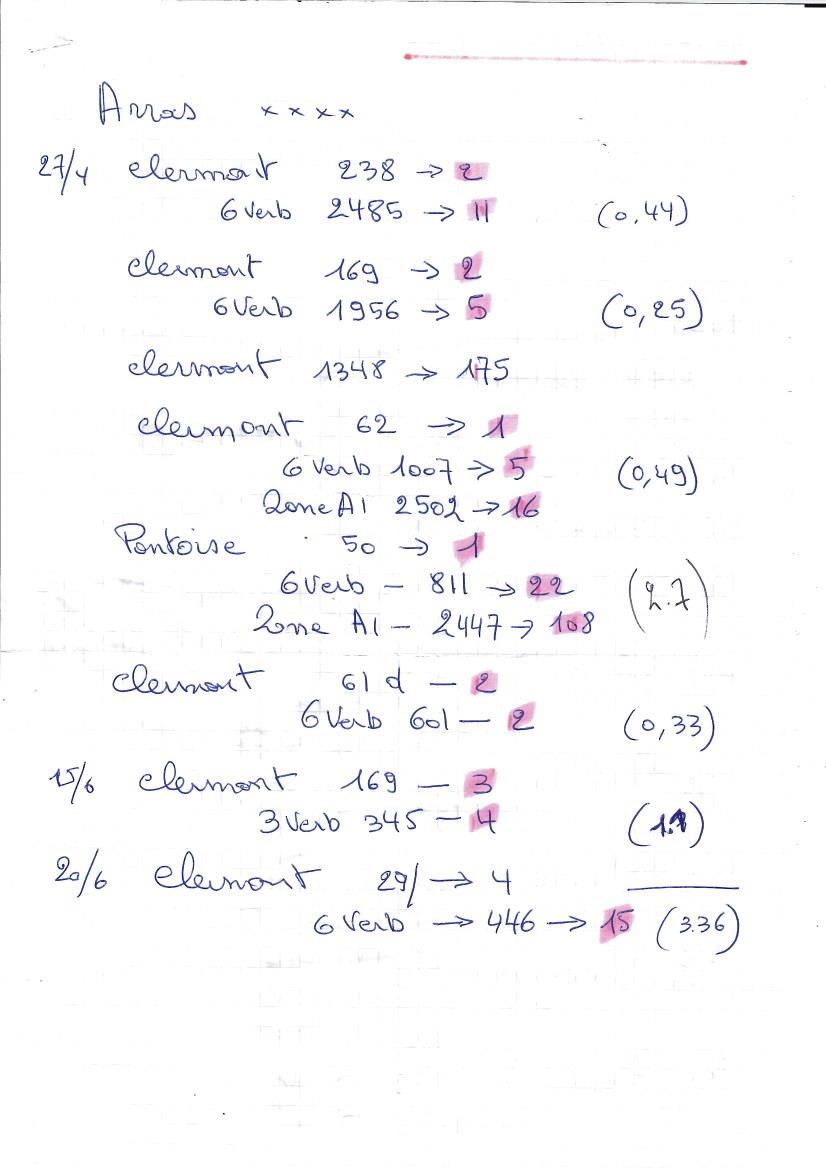 Arras xxxx
27/4 Clermont 238 → 2
6 Verb 2485 → 11 (0,44)
Clermont 169 → 2
6 Verb 1956 → 5 (0,25)
Clermont 1348 → 175
Clermont 62 → 1
6 Verb 1007 → 5 (0,49)
Zone A1 2502 → 16
Pontoise 50 → 1
6 Verb - 811 → 22 (2.7)
Zone A1 - 2447 → 108
Clermont 61 d - 2
6 Verb 601 - 2 (0,33)
15/6 Clermont 169 - 3
3 Verb 345 - 4 (1.1)
20/6 Clermont 29/ → 4
6 Verb → 446 → 15 (3.36)